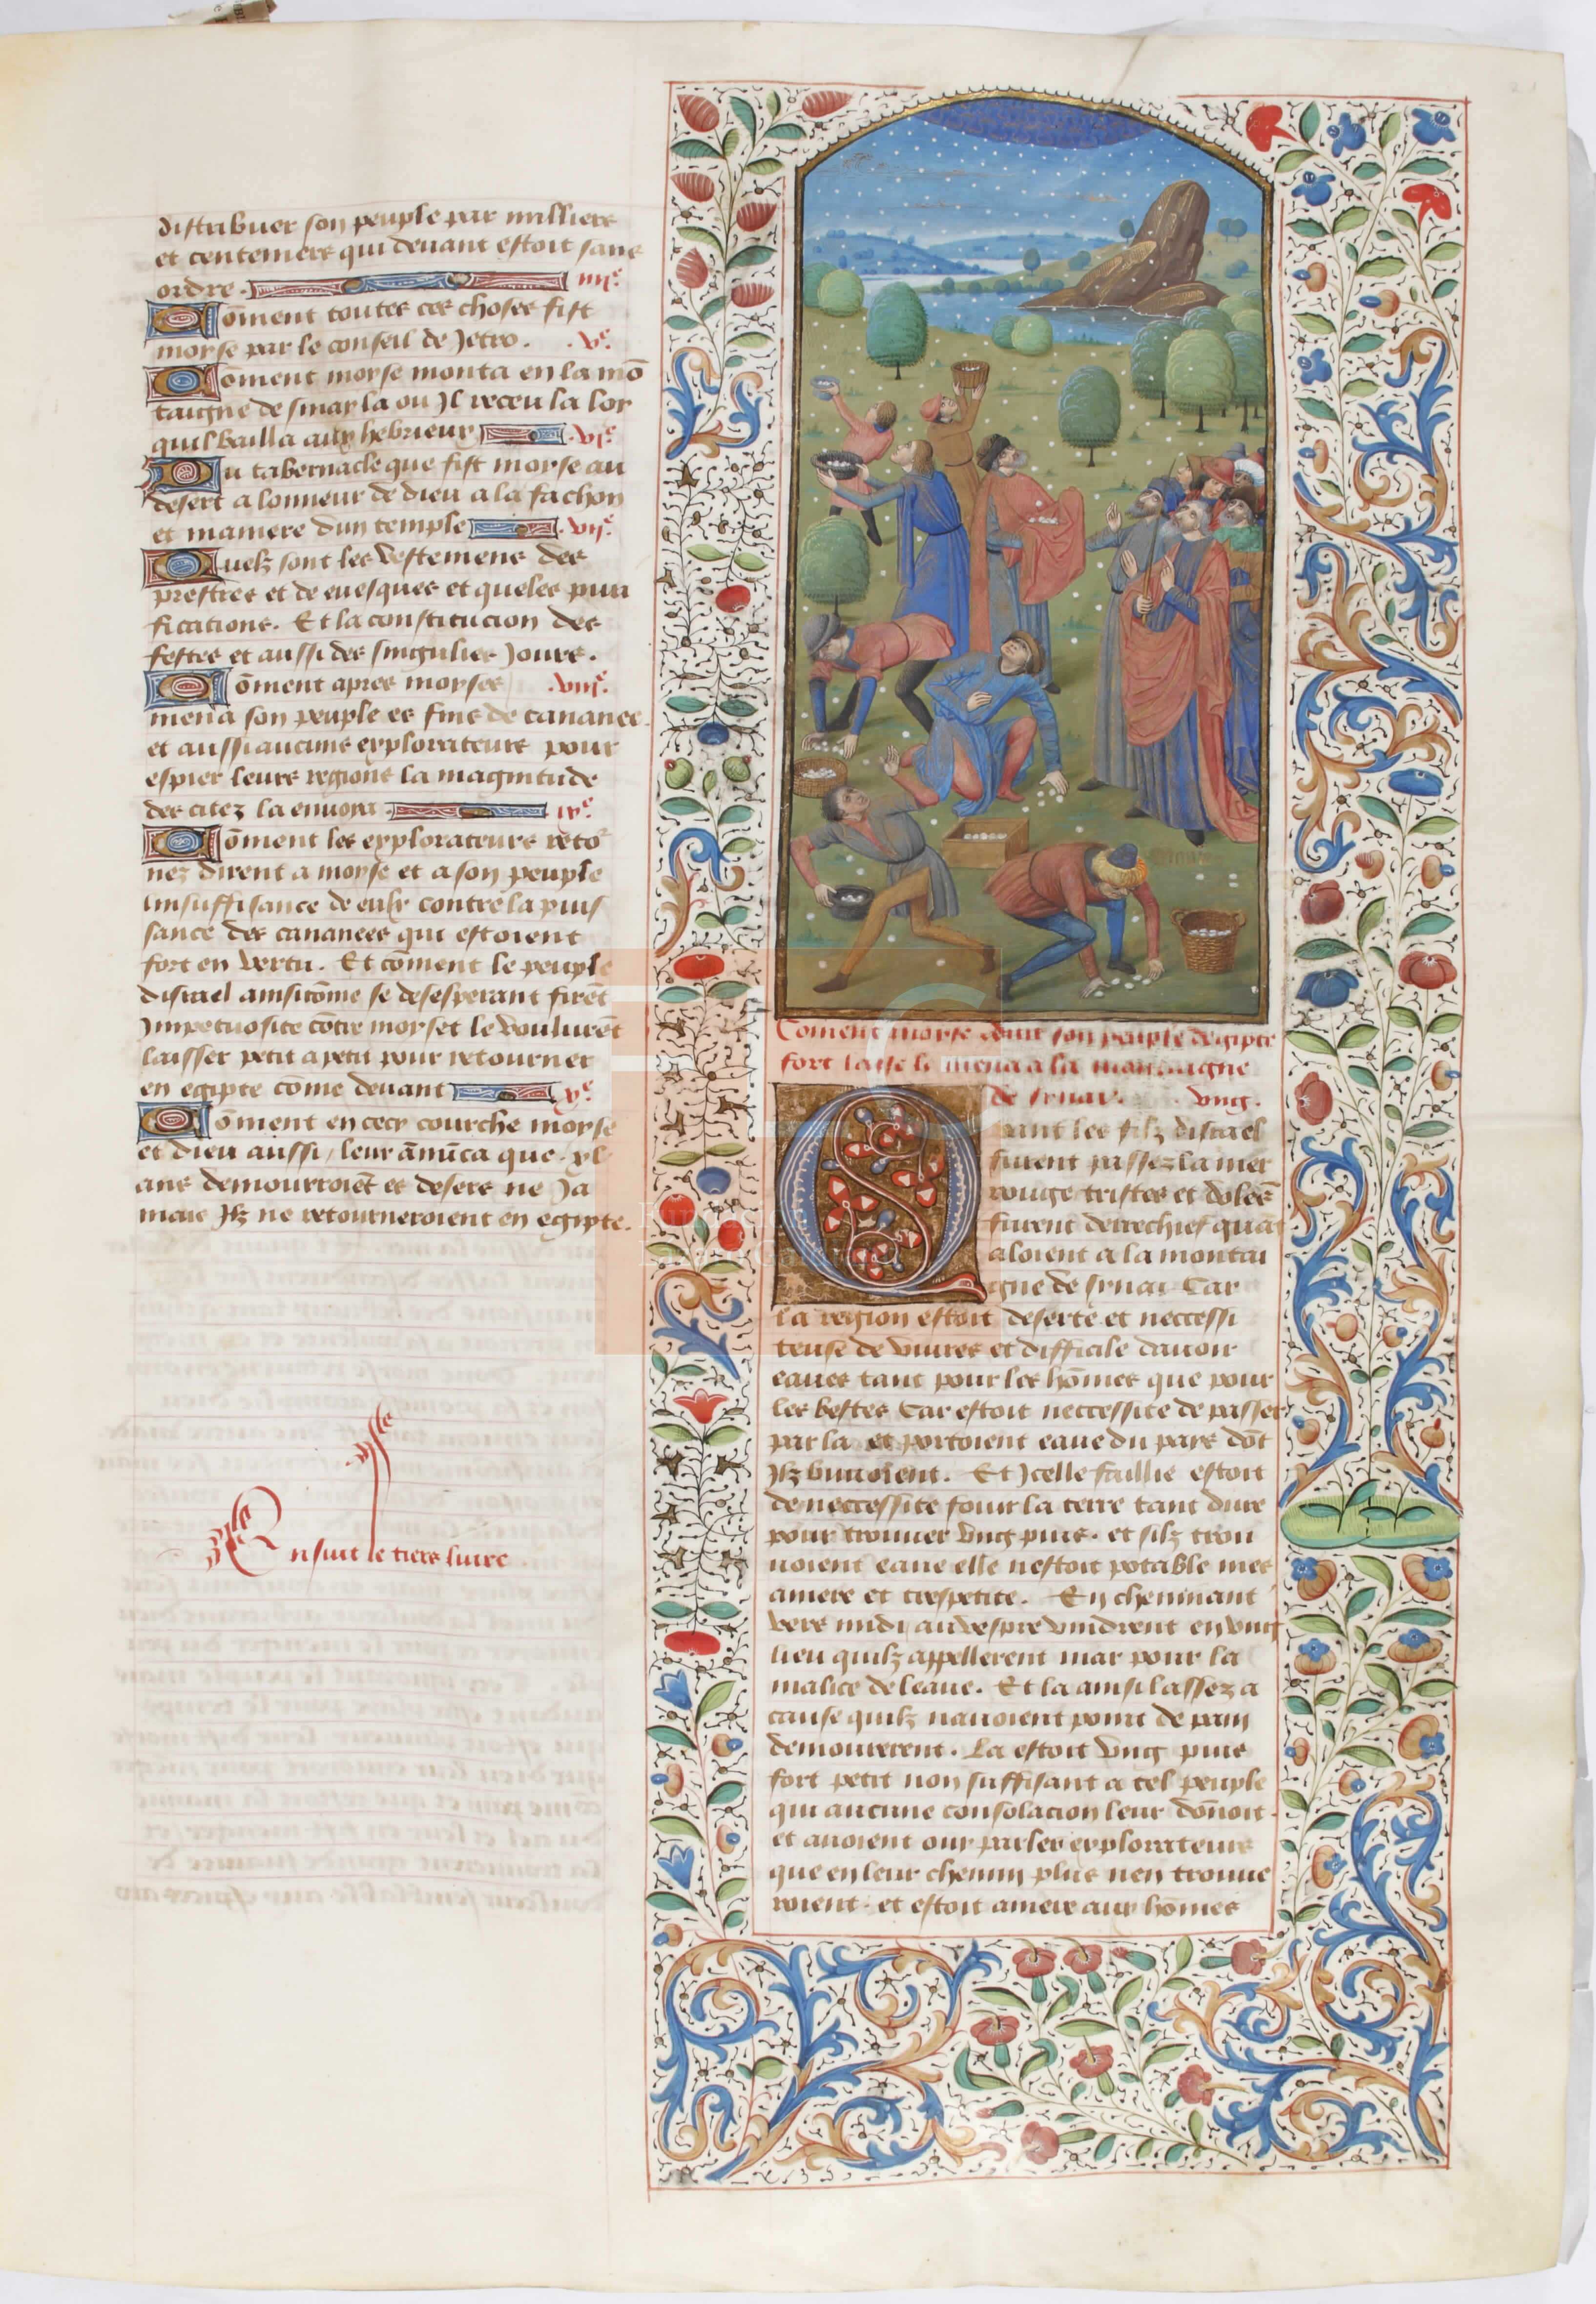 distribuer son peuple par milliers
et centeniers qui deuant estoit sans
ordre. iiije.
Coment toutes ces choses fist
moyse par le conseil de Jetro. ve.
Coment moyse monta en la mō
taigne de sinay la ou Jl receu la loy
quil bailla aux hebrieux vje.
Du tabernacle que fist moyse au
desert a lonneur de dieu a la fachon
et maniere dun temple vije.
Quelz sont les vestemens des
prestres et de euesques et queles puri
fications. Et la constitucion des
festes et aussi des singulies Jours.
Cōment apres moyses viije.
mena son peuple es fins de cananee
et aussi aucuns explorateurs pour
espier leurs regions la magnitude
des citez la enuoya ixe.
Cōment les explorateurs reto
nez dirent a moyse et a son peuple
linsuffisance de eulx contre la puis
sance des cananees qui estoient
fort en vertu. Et cōment le peuple
disrael ainsi cōme se desesperant firēt
Jmpetuosite cōtre moyse et le voulurēt
laisser petit a petit pour retourner
en egipte cōme deuant xe.
Cōment en cecy courche moyse
et dieu aussi / leur ānūca que . xl
ans demourroiēt es desers ne Ja
mais Jlz ne retourneroient en egipte.
Ensuit le tiers liure
Coment moyse son peuple degipte
fort lasse le mena a la montaigne
de synay. vng.
Quant les filz disrael
furent passez la mer
rouge tristes et dolēs
furent derrechief quāt
aloient a la montai
gne de synai Car
la region estoit deserte et neccessi
teuse de viures et difficile dauoir
eaues tant pour les hōmes que pour
les bestes Car estoit neccessite de passer
par la et portoient eaue du pays dōt
Jlz buuoient. Et Jcelle faillie estoit
de neccessite fouir la terre tant dure
pour trouuer vng puis. et silz trou
uoient eaue elle nestoit potable mes
amere et trespetite. En cheminant
vers midi au vespre vindrent en vng
lieu quilz appellerent mar pour la
malice de leaue. Et la ainsi lassez a
cause quilz nauoient point de pain
demourerent. La estoit vng puis
fort petit non suffisant a tel peuple
qui aucune consolacion leur dōnoit.
et auoient ouy parler explorateurs
que en leur chemin plus nen trouue
roient. et estoit amere aux hōmes